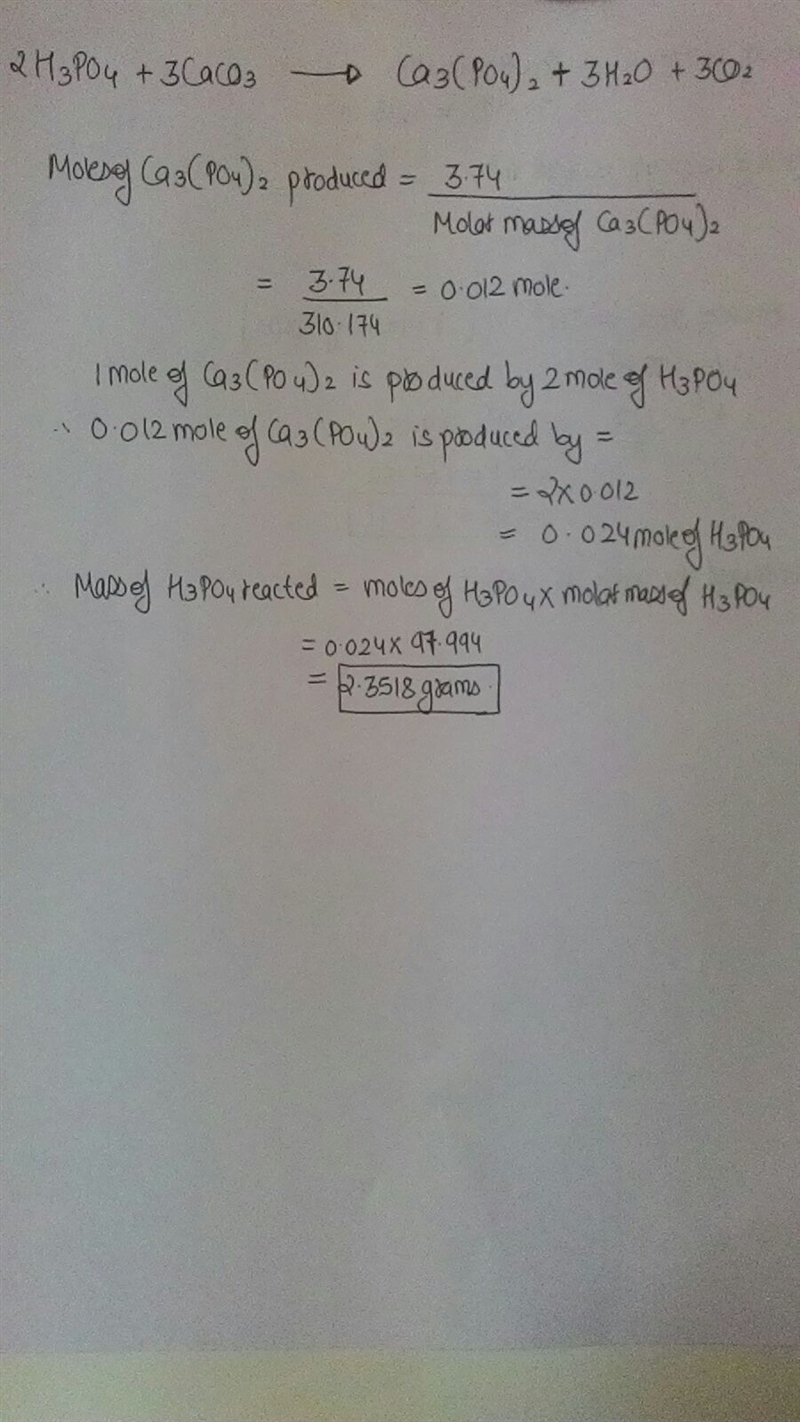 2H3PO4 + 3CaCO3 → Ca3(PO4)2 + 3H2O + 3CO2
Moles of Ca3(PO4)2 produced = 3.74
Molar mass of Ca3(PO4)2
= 3.74 = 0.012 mole.
310.174
1 mole of Ca3(PO4)2 is produced by 2 mole of H3PO4
∴ 0.012 mole of Ca3(PO4)2 is produced by =
= 2×0.012
= 0.024 mole of H3PO4
∴ Mass of H3PO4 reacted = moles of H3PO4 × molar mass of H3PO4
= 0.024 × 97.994
= 2.3518 grams.